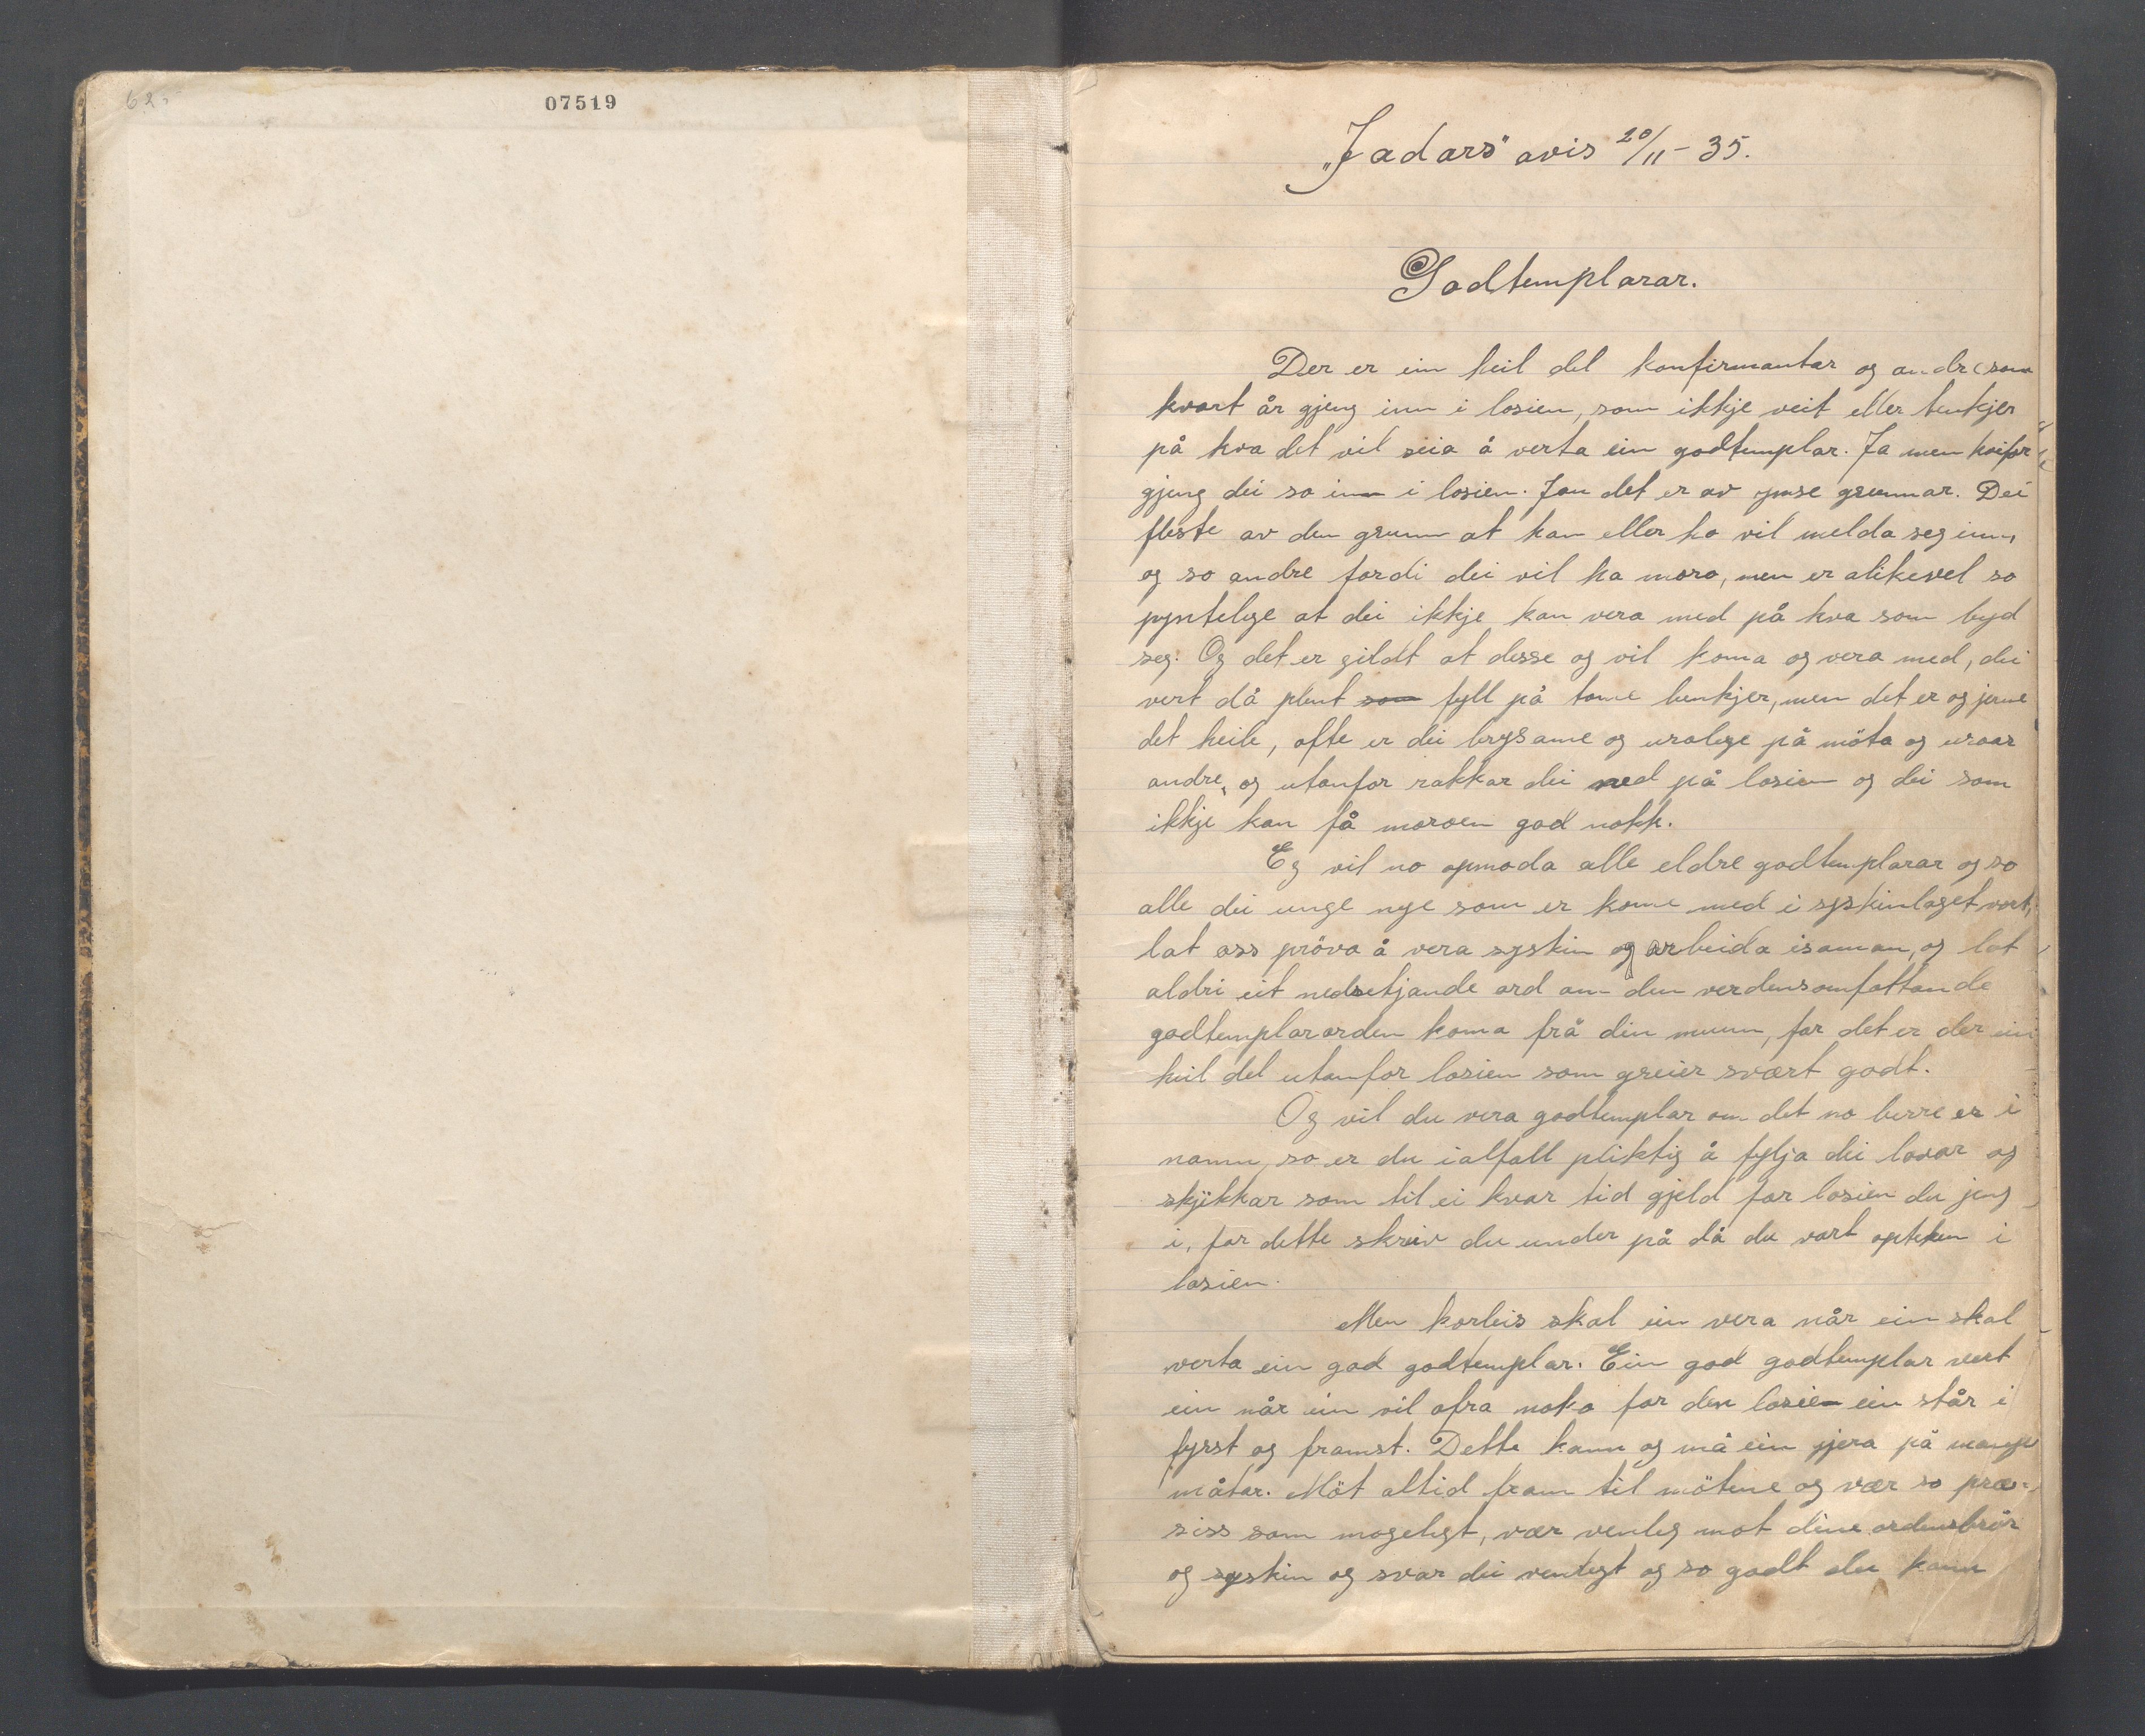 62.-
07519
„Jadars" avis 20/11-35.
Godtemplarar.
Der er ein heil del konfirmantar og andre som
kvart år gjeng inn i losien, som ikkje veit eller tenkjer
på kva det vil seia å verta ein godtemplar. Ja men kvifor
gjeng dei so inn i losien. Jau det er av ymse grunnar. Dei
fleste av den grunn at han eller ho vil melda seg inn,
og so andre fordi dei vil ha moro, men er alikevel so
pyntelege at dei ikkje kan vera med på kva som byd
seg. Og det er gildt at desse og vil koma og vera med, dei
vert då plent som fyll på tome benkjer, men det er og jerne
det heile, ofte er dei brysame og urolege på möta og uroar
andre, og utanfor rakkar dei ned på losien og dei som
ikkje kan få moroen god nokk.
Eg vil no opmoda alle eldre godtemplarar og so
alle dei unge nye som er kome med i syskinlaget vort,
lat oss pröva å vera syskin og arbeida isaman, og lat
aldri eit nedsetjande ord om den verdensomfattande
godtemplarorden koma frå din munn, for det er der ein
heil del utanfor losien som greier svært godt.
Og vil du vera godtemplar om det no berre er i
namn, so er du ialfall pliktig å fylja dei lovar og
skjikkar som til ei kvar tid gjeld for losien du jeng
i, for dette skreiv du under på då du vart opteken i
losien.
Men korleis skal ein vera når ein skal
verta ein god godtemplar. Ein god godtemplar vert
ein når ein vil ofra noko for den losien ein står i
fyrst og framst. Dette kann og må ein gjera på mange
måtar. Möt altid fram til mötene og vær so præ-
siss som mogelegt, vær venleg mot dine ordensbrör
og syskin og svar dei venlegt og so godt du kann